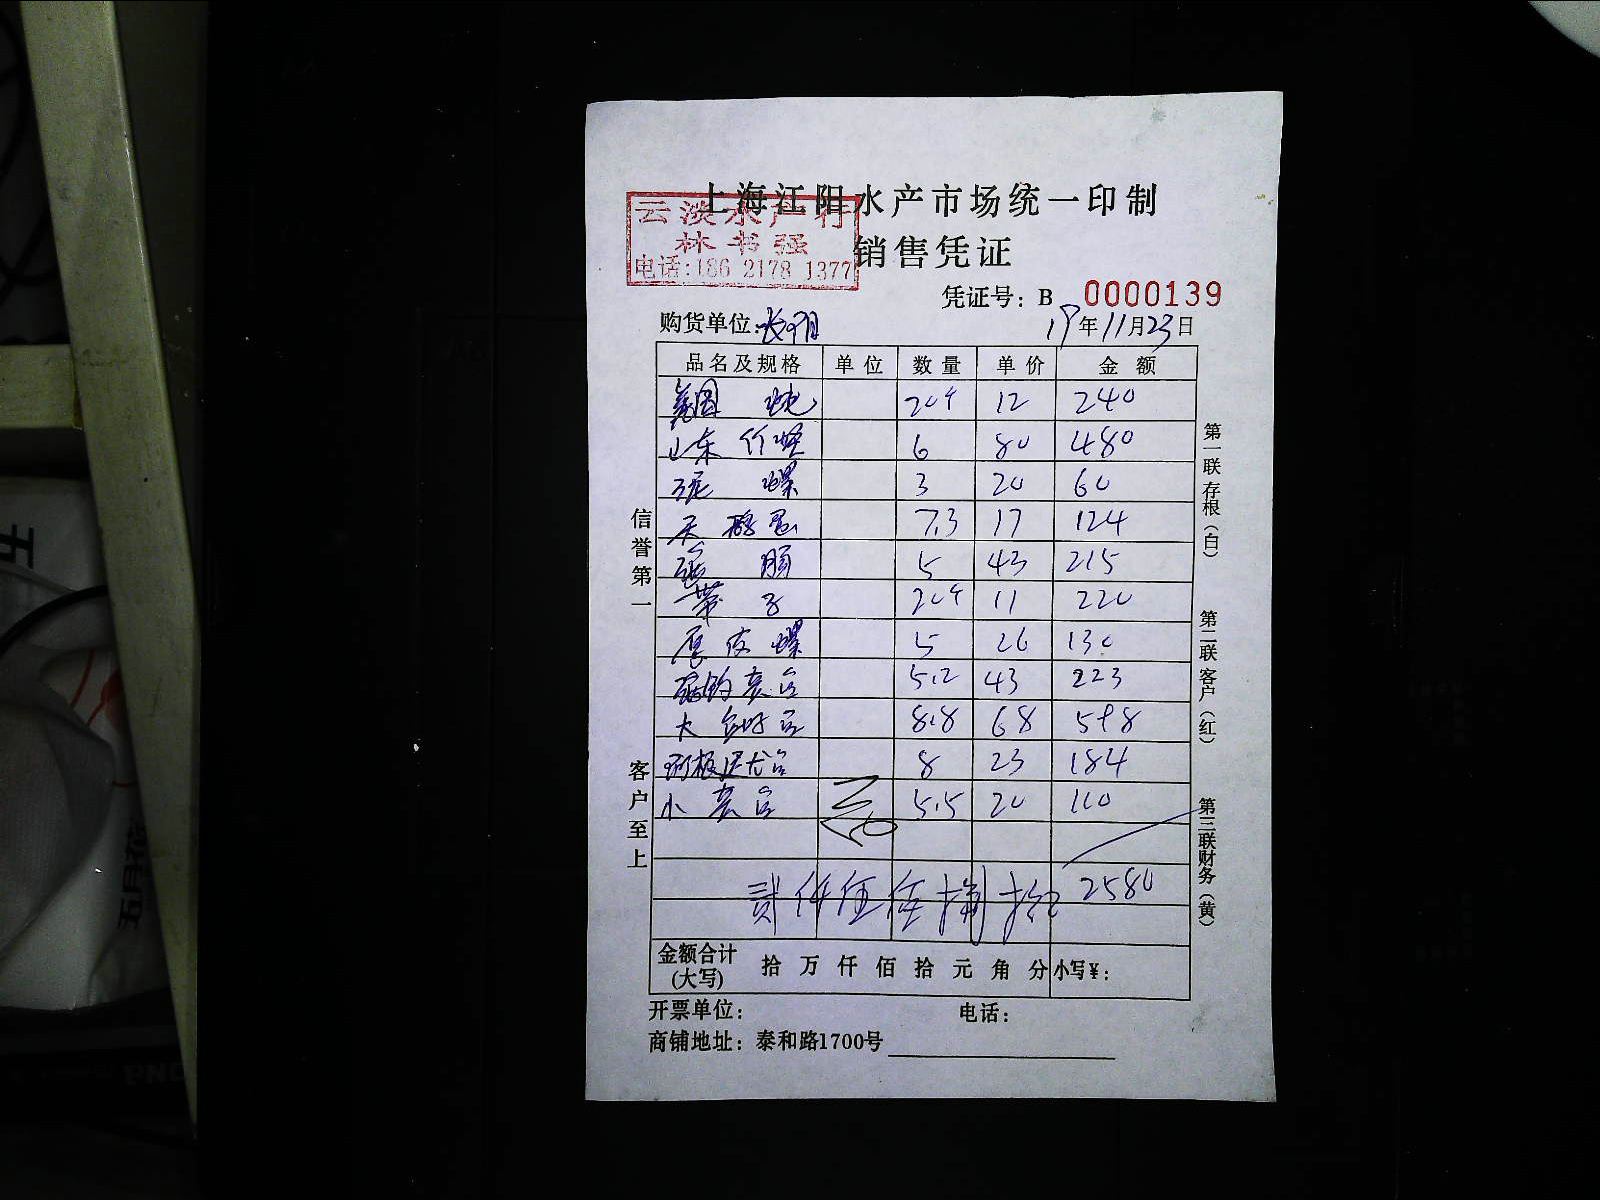 上海江阳水产市场统一印制
云淡水产行
林书强
电话:186 2178 1377
销售凭证
凭证号: B 0000139
购货单位:
19年11月23日
品名及规格 单位 数量 单价 金额
美国 蚬 20个 12 240
山东 竹蛏 6 80 480
泥 螺 3 20 60
天 鹅蛋 7.3 17 124
5 43 215
带 子 20个 11 220
厚皮螺 5 26 130
5.2 43 223
大 8.8 68 598
8 23 184
小 5.5 20 110
贰仟伍佰捌拾 2580
金额合计(大写) 拾 万 仟 佰 拾 元 角 分 小写¥:
开票单位: 电话:
商铺地址: 泰和路1700号
信誉第一
客户至上
第一联 存根(白)
第二联 客户(红)
第三联 财务(黄)